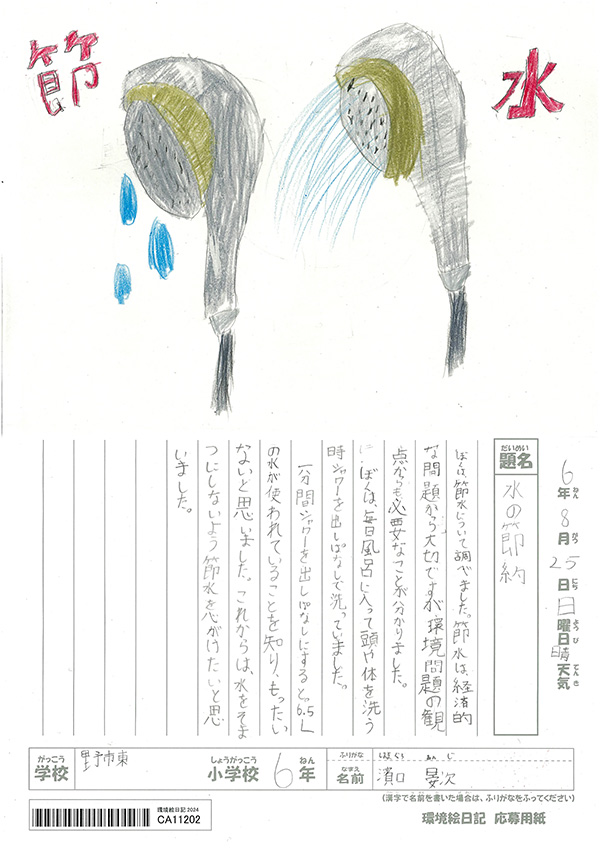 節水
だいめい
題名
水の節約
6年8月25日日曜日晴天気
ねん がつ にち ようび てんき
ぼくは節水について調べました。節水は、経済的
な問題から大切ですが環境問題の観
点からも必要なことが分かりました。
ぼくは、毎日風呂に入って頭や体を洗う
時シャワーを出しぱなしで洗っていました。
一分間シャワーを出しぱなしにすると、6.5L
の水が使われていることを知り、もったい
ないと思いました。これからは、水をそま
つにしないよう節水を心がけたいと思
いました。
がっこう
学校
野市東
しょうがっこう
小学校
6年
ねん
ふりがな
なまえ
名前
濱口 晏次
(漢字で名前を書いた場合は、ふりがなをふってください)
環境絵日記2024
CA11202
環境絵日記 応募用紙